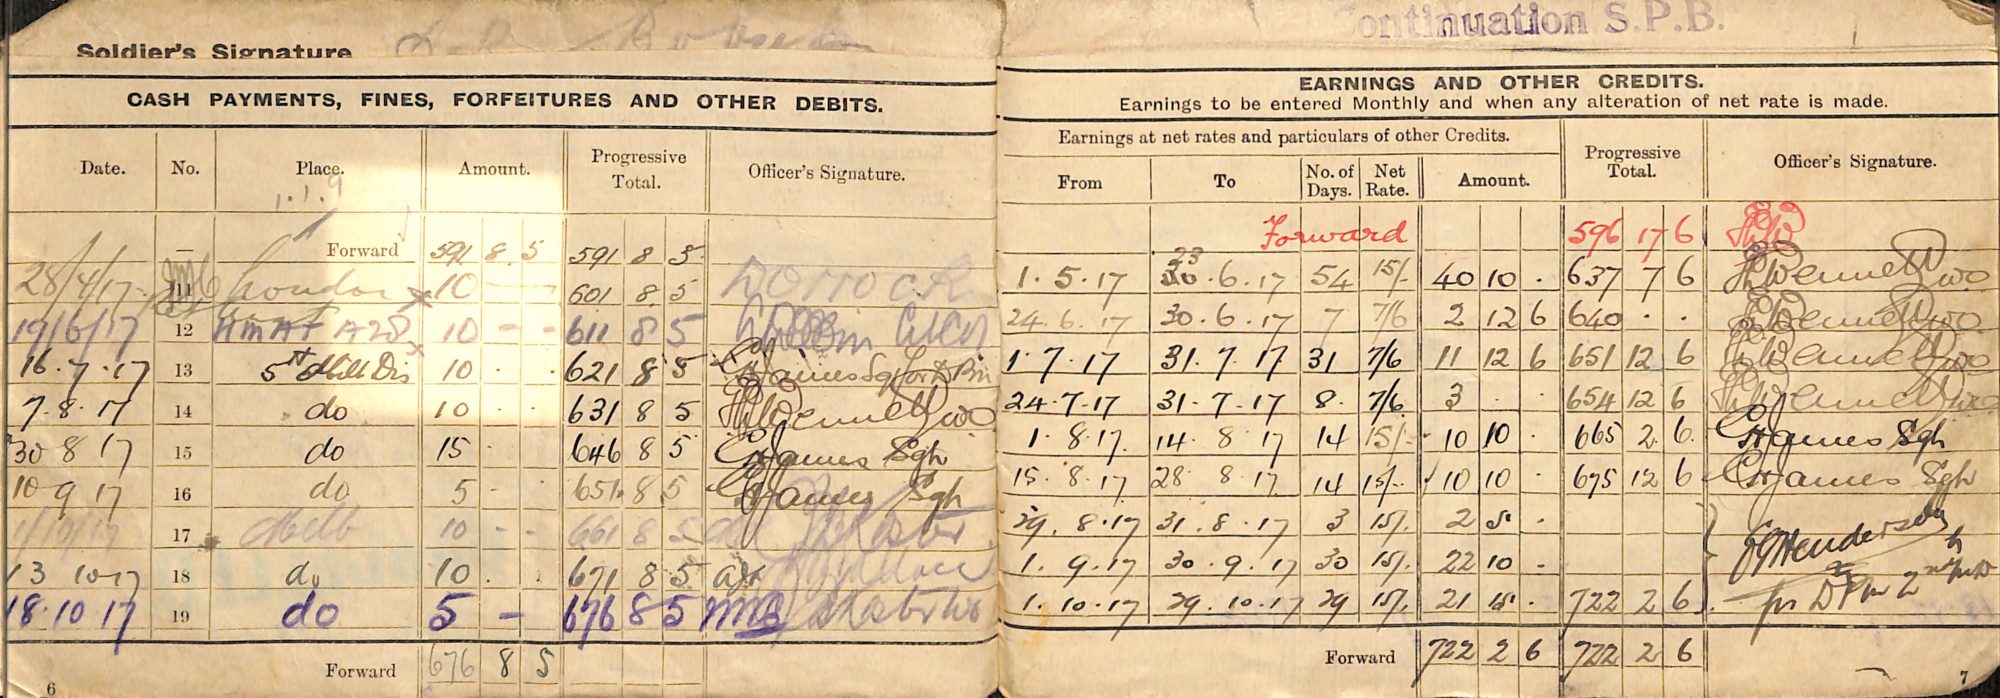 Soldier's Signature
Continuation S.P.B.
CASH PAYMENTS, FINES, FORFEITURES AND OTHER DEBITS.
Date. No. Place. Amount. Progressive Total. Officer's Signature.
1.1.9
— Forward 591 8 5 591 8 5
28/4/17 11 London 10 — — 601 8 5
19/6/17 12 HMAT A28 10 - - 611 8 5
16.7.17 13 5th Mil Dis 10 . . 621 8 5
7.8.17 14 do 10 . . 631 8 5 Bennett WO
30 8 17 15 do 15 . . 646 8 5 James Sgt
10 9 17 16 do 5 - . 651 8 5 James Sgt
1/10/17 17 10 - - 661 8 5
13 10 17 18 do 10 . . 671 8 5
18.10.17 19 do 5 - 676 8 5
Forward 676 8 5
6
EARNINGS AND OTHER CREDITS.
Earnings to be entered Monthly and when any alteration of net rate is made.
Earnings at net rates and particulars of other Credits. Progressive Total. Officer's Signature.
From To No. of Days. Net Rate. Amount.
Forward 596 17 6
1.5.17 23 30.6.17 54 15/- 40 10 . 637 7 6 Bennett WO
24.6.17 30.6.17 7 7/6 2 12 6 640 . . Bennett WO
1.7.17 31.7.17 31 7/6 11 12 6 651 12 6 Bennett WO
24.7.17 31.7.17 8. 7/6 3 . . 654 12 6 Bennett WO
1.8.17. 14.8.17 14 15/- 10 10 . 665 2 6. James Sgt
15.8.17 28 8.17 14 15/- 10 10 . 675 12 6 James Sgt
29.8.17 31.8.17 3 15/. 2 5 .
1.9.17 30.9.17 30 15/. 22 10 - Henderson
1.10.17 29.10.17 29 15/. 21 15 . 722 2 6 for
Forward 722 2 6 722 2 6
7